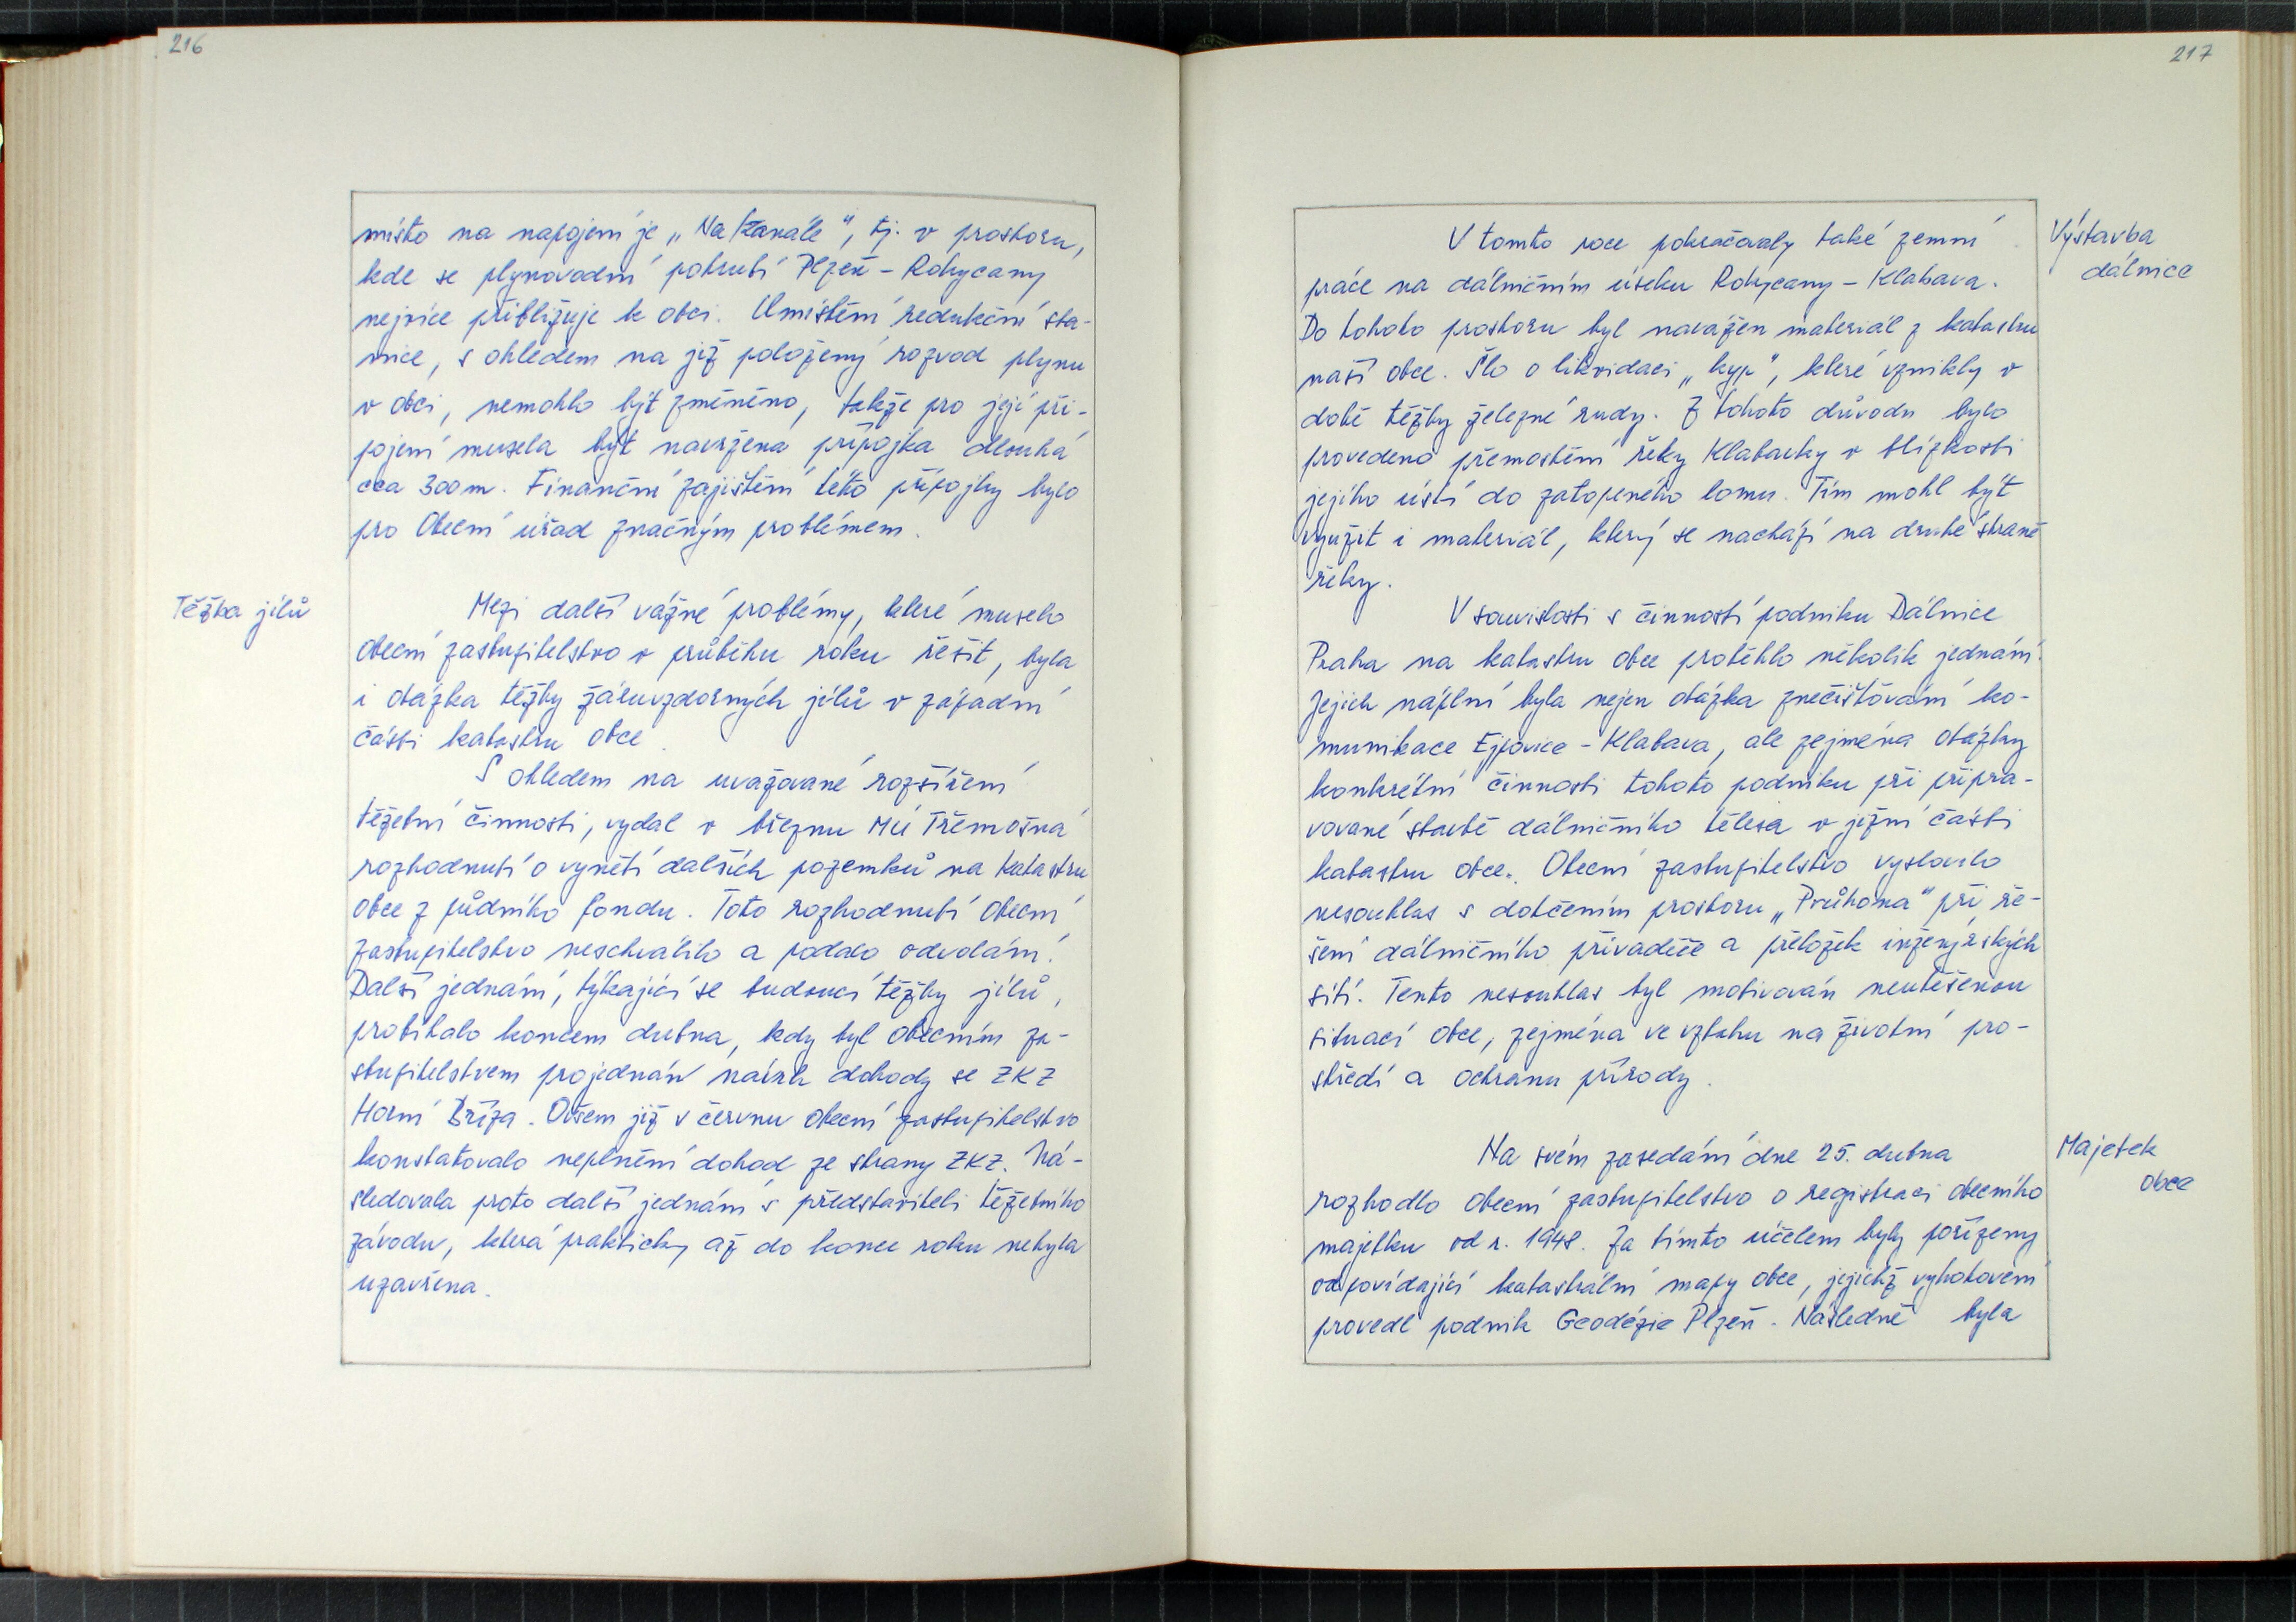 216
místo na napojení je „Na Kanále", tj. v prostoru,
kde se plynovodní potrubí Plzeň - Rokycany
nejvíce přibližuje k obci. Umístění redukční sta-
nice, s ohledem na již položený rozvod plynu
v obci, nemohlo být změněno, takže pro její při-
pojení musela být navržena přípojka dlouhá
cca 300 m. Finanční zajištění této přípojky bylo
pro Obecní úřad značným problémem.
Těžba jílů
Mezi další vážné problémy, které muselo
obecní zastupitelstvo v průběhu roku řešit, byla
i otázka těžby žáruvzdorných jílů v západní
části katastru obce.
S ohledem na uvažované rozšíření
těžební činnosti, vydal v březnu MÚ Třemošná
rozhodnutí o vynětí dalších pozemků na katastru
obce z půdního fondu. Toto rozhodnutí obecní
zastupitelstvo neschválilo a podalo odvolání.
Další jednání, týkající se budoucí těžby jílů,
probíhalo koncem dubna, kdy byl obecním za-
stupitelstvem projednán návrh dohody se ZKZ
Horní Bříza. Ovšem již v červnu obecní zastupitelstvo
konstatovalo neplnění dohod ze strany ZKZ. Ná-
sledovala proto další jednání s představiteli těžebního
závodu, která prakticky až do konce roku nebyla
uzavřena.
217
Výstavba
dálnice
V tomto roce pokračovaly také zemní
práce na dálničním úseku Rokycany - Klabava.
Do tohoto prostoru byl navážen materiál z katastru
naší obce. Šlo o likvidaci „kyp", které vznikly v
době těžby železné rudy. Z tohoto důvodu bylo
provedeno přemostění řeky Klabavky v blízkosti
jejího ústí do zatopeného lomu. Tím mohl být
využit i materiál, který se nachází na druhé straně
řeky.
V souvislosti s činností podniku Dálnice
Praha na katastru obce proběhlo několik jednání.
Jejich náplní byla nejen otázka znečišťování ko-
munikace Ejpovice - Klabava, ale zejména otázky
konkrétní činnosti tohoto podniku při připra-
vované stavbě dálničního tělesa v jižní části
katastru obce. Obecní zastupitelstvo vyslovilo
nesouhlas s dotčením prostoru „Průhona" při ře-
šení dálničního přivaděče a přeložek inženýrských
sítí. Tento nesouhlas byl motivován neutěšenou
situací obce, zejména ve vztahu na životní pro-
středí a ochranu přírody.
Majetek
obce
Na svém zasedání dne 25. dubna
rozhodlo obecní zastupitelstvo o registraci obecního
majetku od r. 1948. Za tímto účelem byly pořízeny
odpovídající katastrální mapy obce, jejichž vyhotovení
provedl podnik Geodézie Plzeň. Následně byla